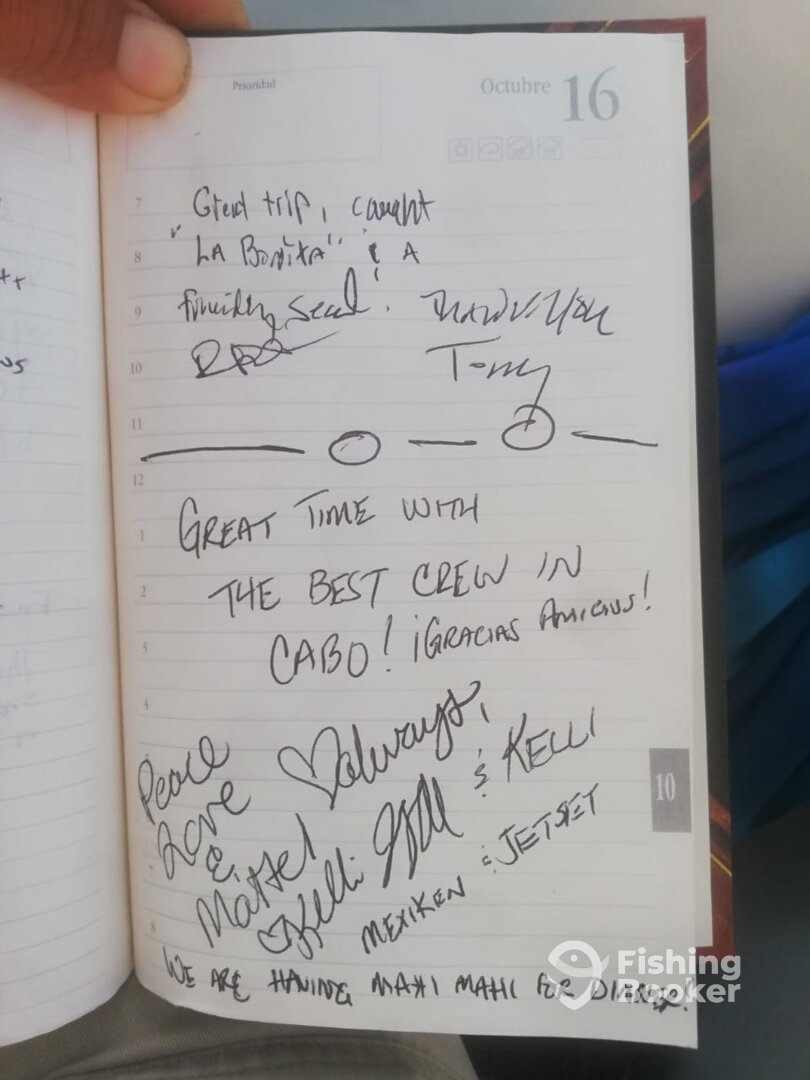 Prioridad
Octubre 16
7 Great trip, caught
8 "LA Bonita" & A
9 friendly seal! THANK YOU
10 Tony
11
12
GREAT TIME WITH
1
2 THE BEST CREW IN
3 CABO! ¡GRACIAS AMIGOS!
4
Peace
Love
&
Mattel
♡always,
& KELLI
♡Kelli
MEXIKEN & JETSET
7
8
WE ARE HAVING MAHI MAHI FOR DINNER!
10
++
us
Fishing
Booker